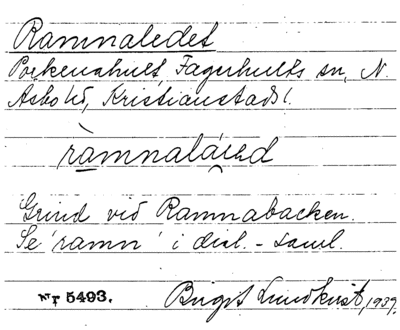 Ramnaledet
Porkenahult, Fagerhults sn, N.
Åsbo hd, Kristianstads l.
ramnala
Grind vid Ramnabacken.
Se 'ramn' i dial. - saml.
5493. Birgit Lundkvist, 1939.